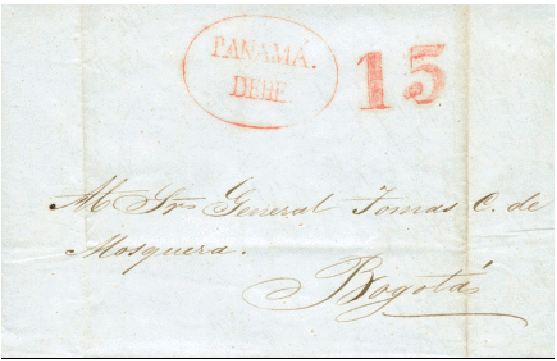 PANAMÁ.
DEBE.
15
Al Sr. General Tomas C. de
Mosquera.
Bogotá